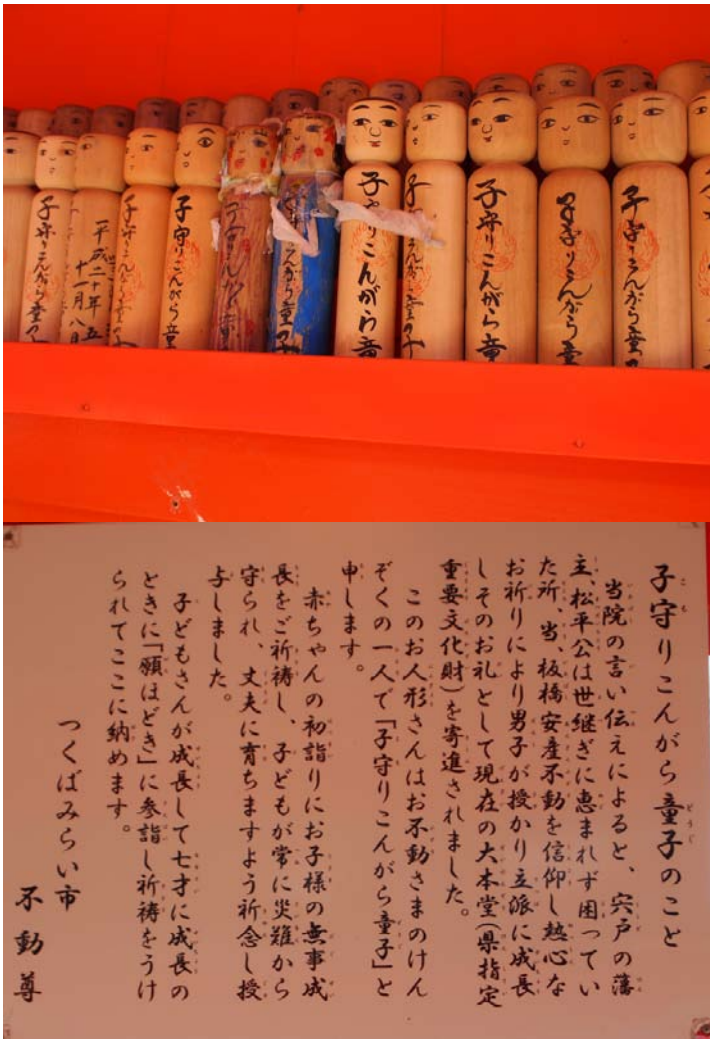 子守りこんがら童
子守りこんがら童
子守りこんがら童
こんがら童子
子守りこんがら童
子守りこんがら童
子守りこんがら童子
平成二十年五
十一月八日
子守りこんがら童子
子守りこんがら童子のこと
当院の言い伝えによると、宍戸の藩
主、松平公は世継ぎに恵まれず困ってい
た所、当、板橋安産不動を信仰し熱心な
お祈りにより男子が授かり立派に成長
しそのお礼として現在の大本堂(県指定
重要文化財)を寄進されました。
このお人形さんはお不動さまのけん
ぞくの一人で「子守りこんがら童子」と
申します。
赤ちゃんの初詣りにお子様の無事成
長をご祈祷し、子どもが常に災難から
守られ、丈夫に育ちますよう祈念し授
与しました。
子どもさんが成長して七才に成長の
ときに「願ほどき」に参詣し祈祷をうけ
られてここに納めます。
つくばみらい市
不動尊